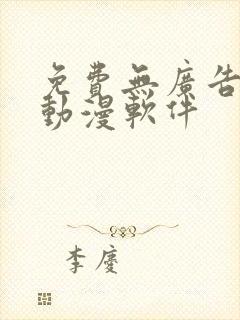 免費無廣告
動漫軟件
李慶